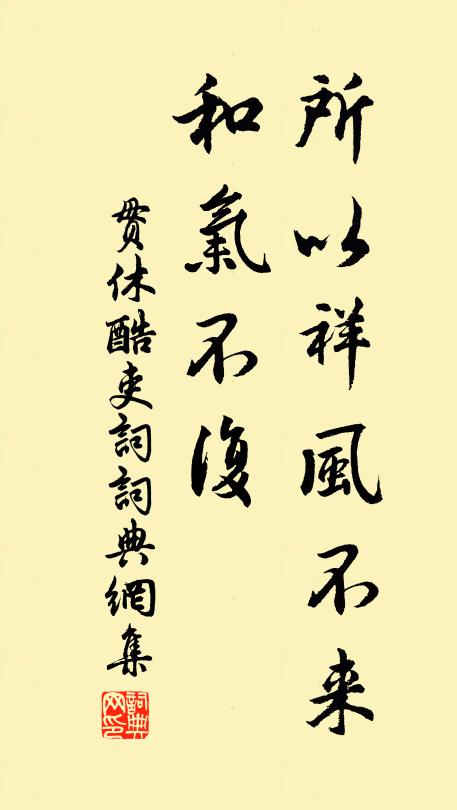 所以祥風不来
和氣不復
貫休酷吏詞詞典網集
詞典网印